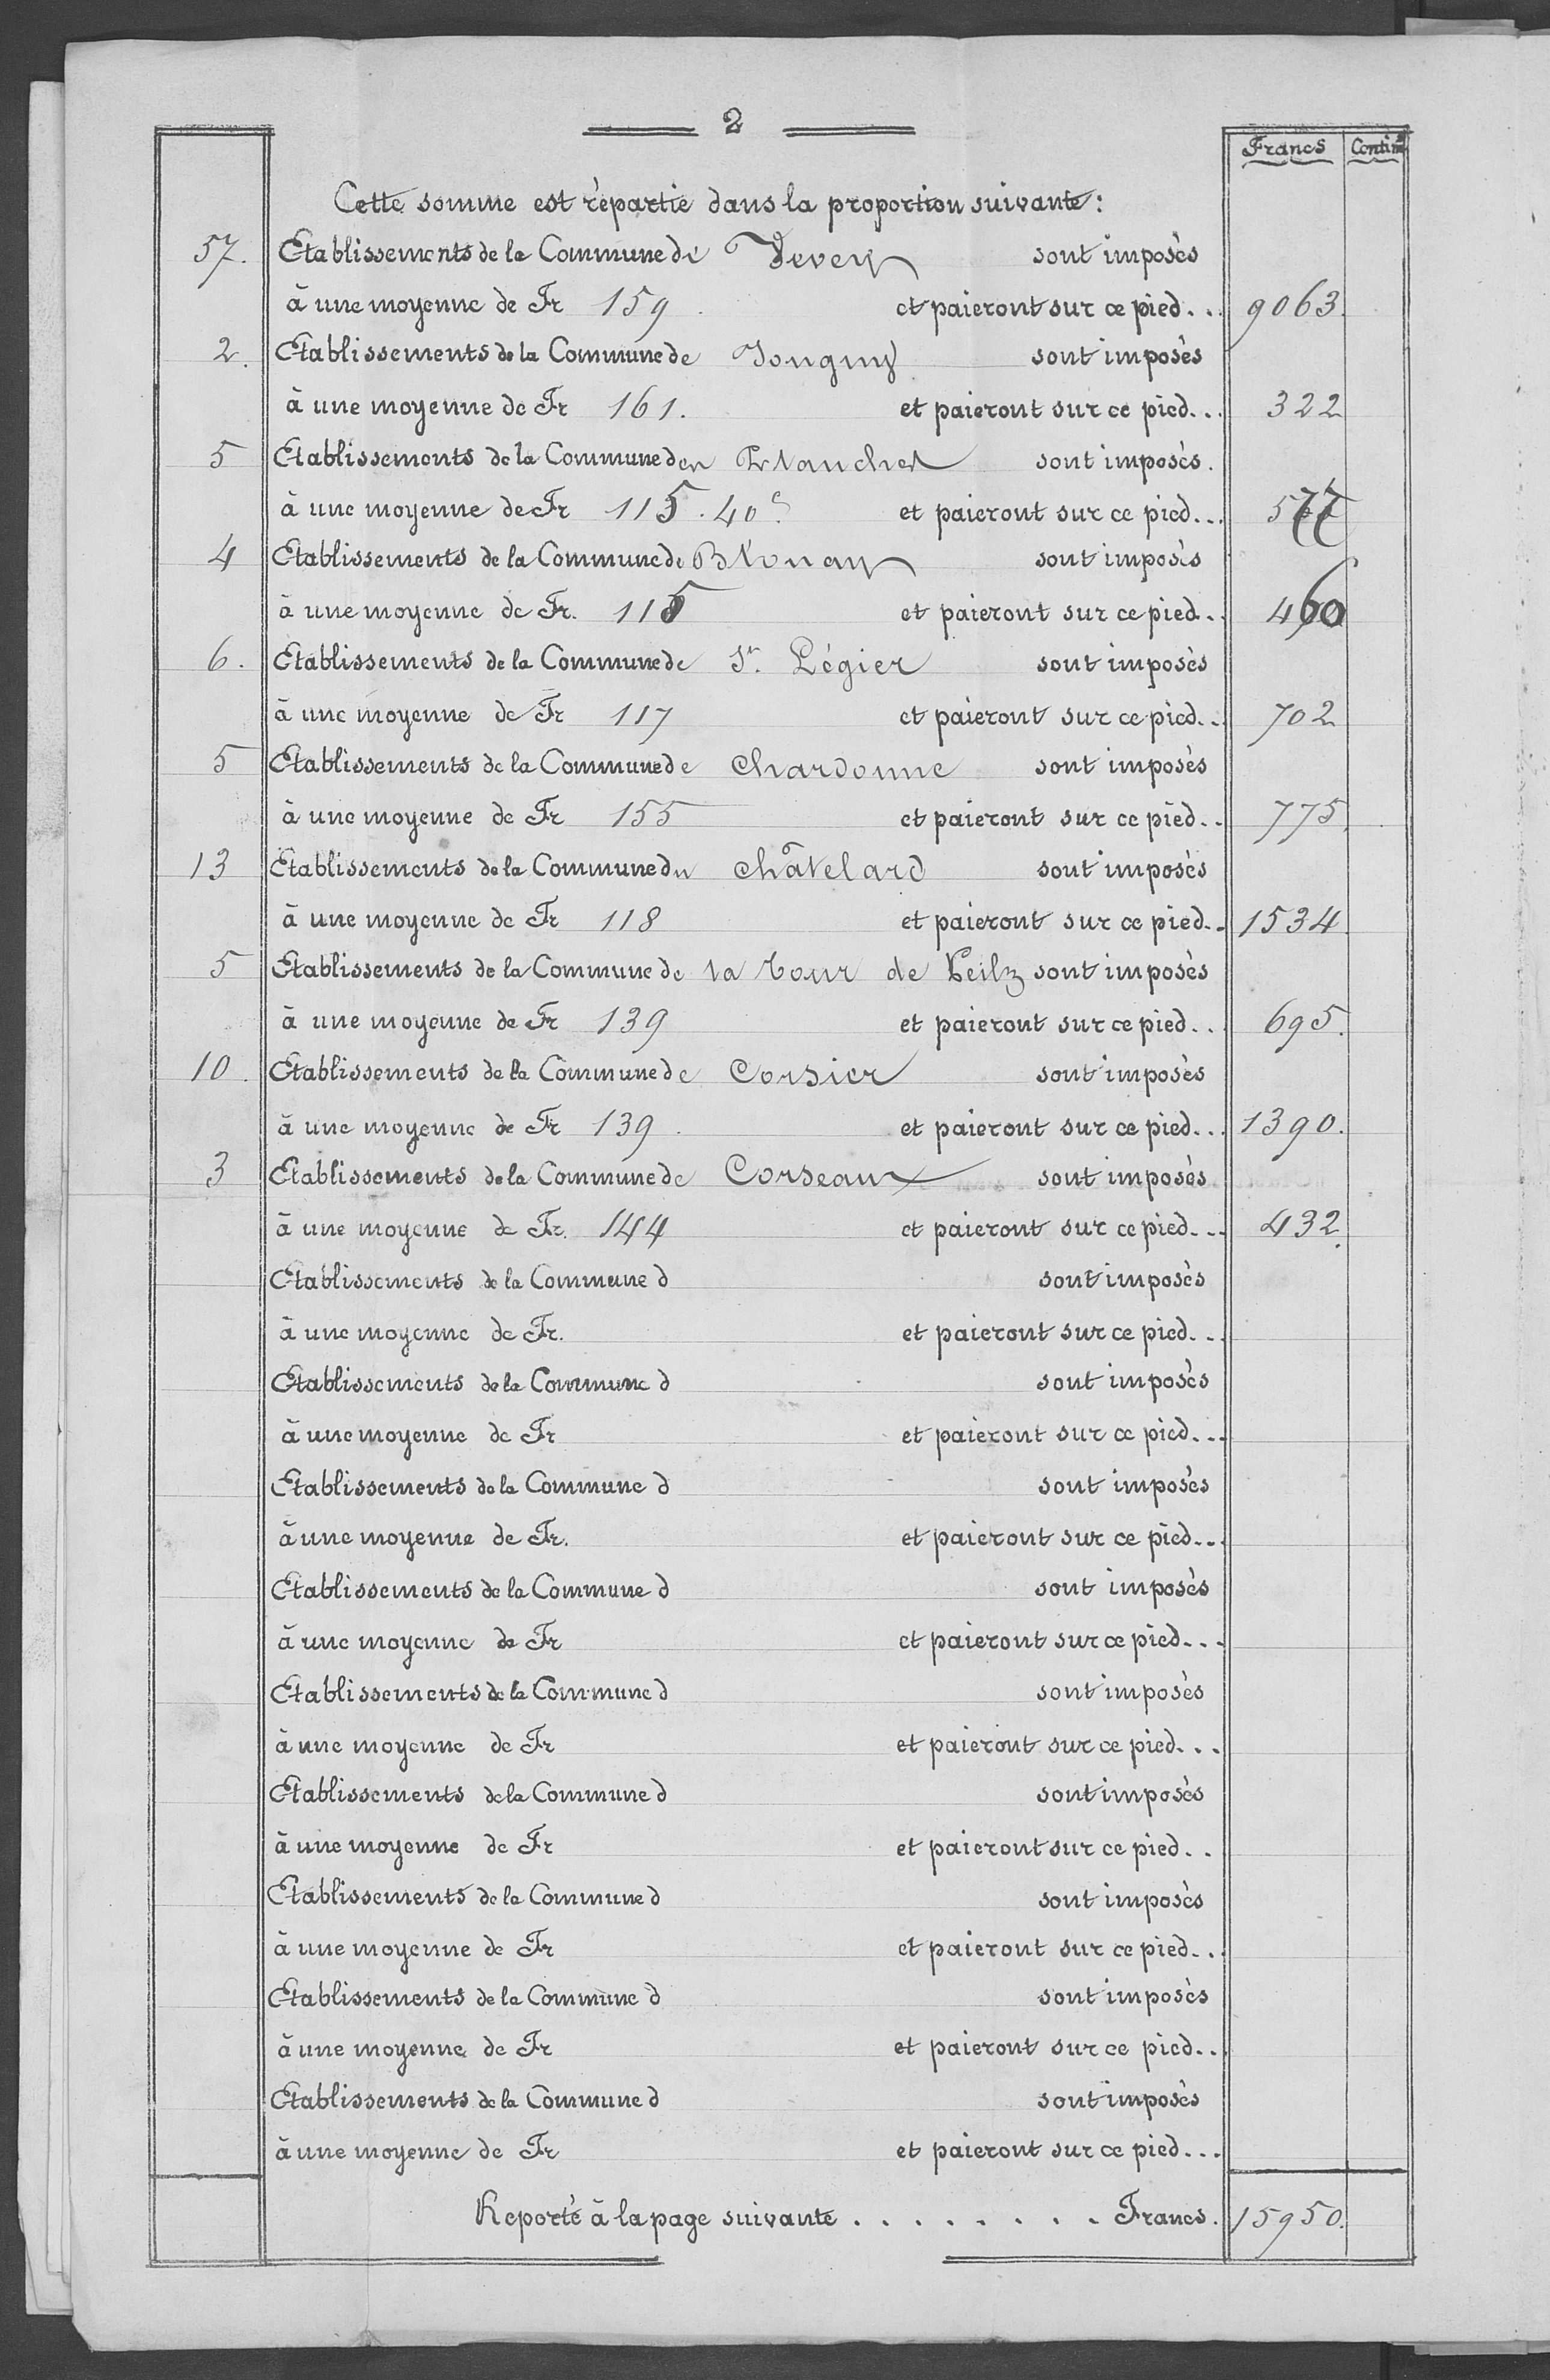 2
Francs Centim
Cette somme est répartie dans la proportion suivante :
57. Etablissements de la Commune de Vevey sont imposés
à une moyenne de Fr 159. et paieront sur ce pied... 9063.
2. Etablissements de la Commune de Jongny sont imposés
à une moyenne de Fr 161. et paieront sur ce pied... 322
5 Etablissements de la Commune des Planches sont imposés.
à une moyenne de Fr 115.40c. et paieront sur ce pied... 577
4 Etablissements de la Commune de Blonay sont imposés
à une moyenne de Fr. 115 et paieront sur ce pied.. 460
6. Etablissements de la Commune de St. Légier sont imposés
à une moyenne de Fr 117 et paieront sur ce pied.. 702
5 Etablissements de la Commune de Chardonne sont imposés
à une moyenne de Fr 155 et paieront sur ce pied.. 775.
13 Etablissements de la Commune du Châtelard sont imposés
à une moyenne de Fr 118 et paieront sur ce pied.. 1534.
5 Etablissements de la Commune de la Tour de Peilz sont imposés
à une moyenne de Fr 139 et paieront sur ce pied.. 695.
10. Etablissements de la Commune de Corsier sont imposés
à une moyenne de Fr 139. et paieront sur ce pied... 1390.
3 Etablissements de la Commune de Corseaux sont imposés
à une moyenne de Fr. 144 et paieront sur ce pied... 432.
Etablissements de la Commune d sont imposés
à une moyenne de Fr. et paieront sur ce pied...
Etablissements de la Commune d sont imposés
à une moyenne de Fr et paieront sur ce pied...
Etablissements de la Commune d sont imposés
à une moyenne de Fr. et paieront sur ce pied...
Etablissements de la Commune d sont imposés
à une moyenne de Fr et paieront sur ce pied...
Etablissements de la Commune d sont imposés
à une moyenne de Fr et paieront sur ce pied...
Etablissements de la Commune d sont imposés
à une moyenne de Fr et paieront sur ce pied..
Etablissements de la Commune d sont imposés
à une moyenne de Fr et paieront sur ce pied...
Etablissements de la Commune d sont imposés
à une moyenne de Fr et paieront sur ce pied..
Etablissements de la Commune d sont imposés
à une moyenne de Fr et paieront sur ce pied...
Reporté à la page suivante ........ Francs. 15950.